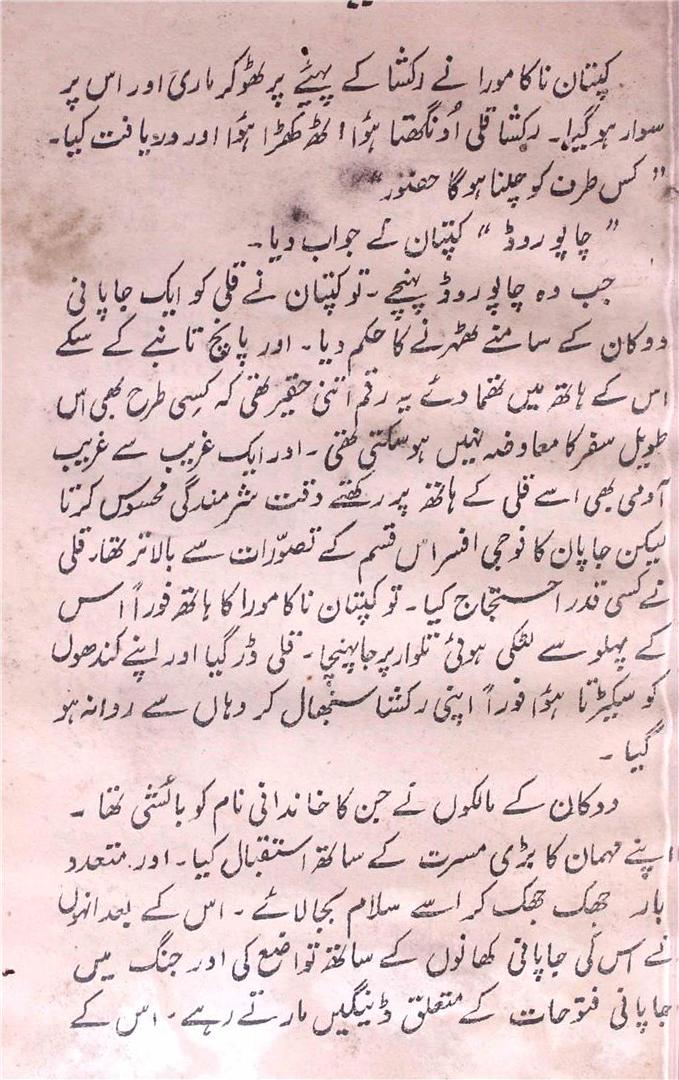 کپتان ناکامورا نے رکشا کے پہیئے پر ٹھوکر ماری اور اس پر
سوار ہو گیا۔ رکشا قلی اُونگھتا ہؤا اٹھ کھڑا ہؤا اور دریافت کیا۔
" کس طرف کو چلنا ہوگا حضور "
" چاپو روڈ " کپتان نے جواب دیا۔
جب وہ چاپو روڈ پہنچے۔ تو کپتان نے قلی کو ایک جاپانی
دوکان کے سامنے ٹھہرنے کا حکم دیا۔ اور پانچ تانبے کے سکے
اس کے ہاتھ میں تھما دئے یہ رقم اتنی حقیر تھی کہ کسِی طرح بھی اس
طویل سفر کا معاوضہ نہیں ہو سکتی تھی۔ اور ایک غریب سے غریب
آدمی بھی اسے قلی کے ہاتھ پر رکھتے وقت شرمندگی محسوس کرتا
لیکن جاپان کا فوجی افسر اس قسم کے تصوّرات سے بالاتر تھا۔ قلی
نے کسی قدر احتجاج کیا۔ تو کپتان ناکامورا کا ہاتھ فوراً اس
کے پہلو سے لٹکی ہوئی تلوار پر جا پہنچا۔ قلی ڈر گیا اور اپنے کندھوں
کو سکیڑتا ہؤا فوراً اپنی رکشا سنبھال کر وہاں سے روانہ ہو
گیا۔
دوکان کے مالکوں نے جن کا خاندانی نام کوبائشی تھا۔
اپنے مہمان کا بڑی مسرت کے ساتھ استقبال کیا۔ اور متعدد
بار جھک جھک کر اسے سلام بجا لائے۔ اس کے بعد انہوں
نے اس کی جاپانی کھانوں کے ساتھ تواضع کی اور جنگ میں
جاپانی فتوحات کے متعلق ڈینگیں مارتے رہے۔ اس کے